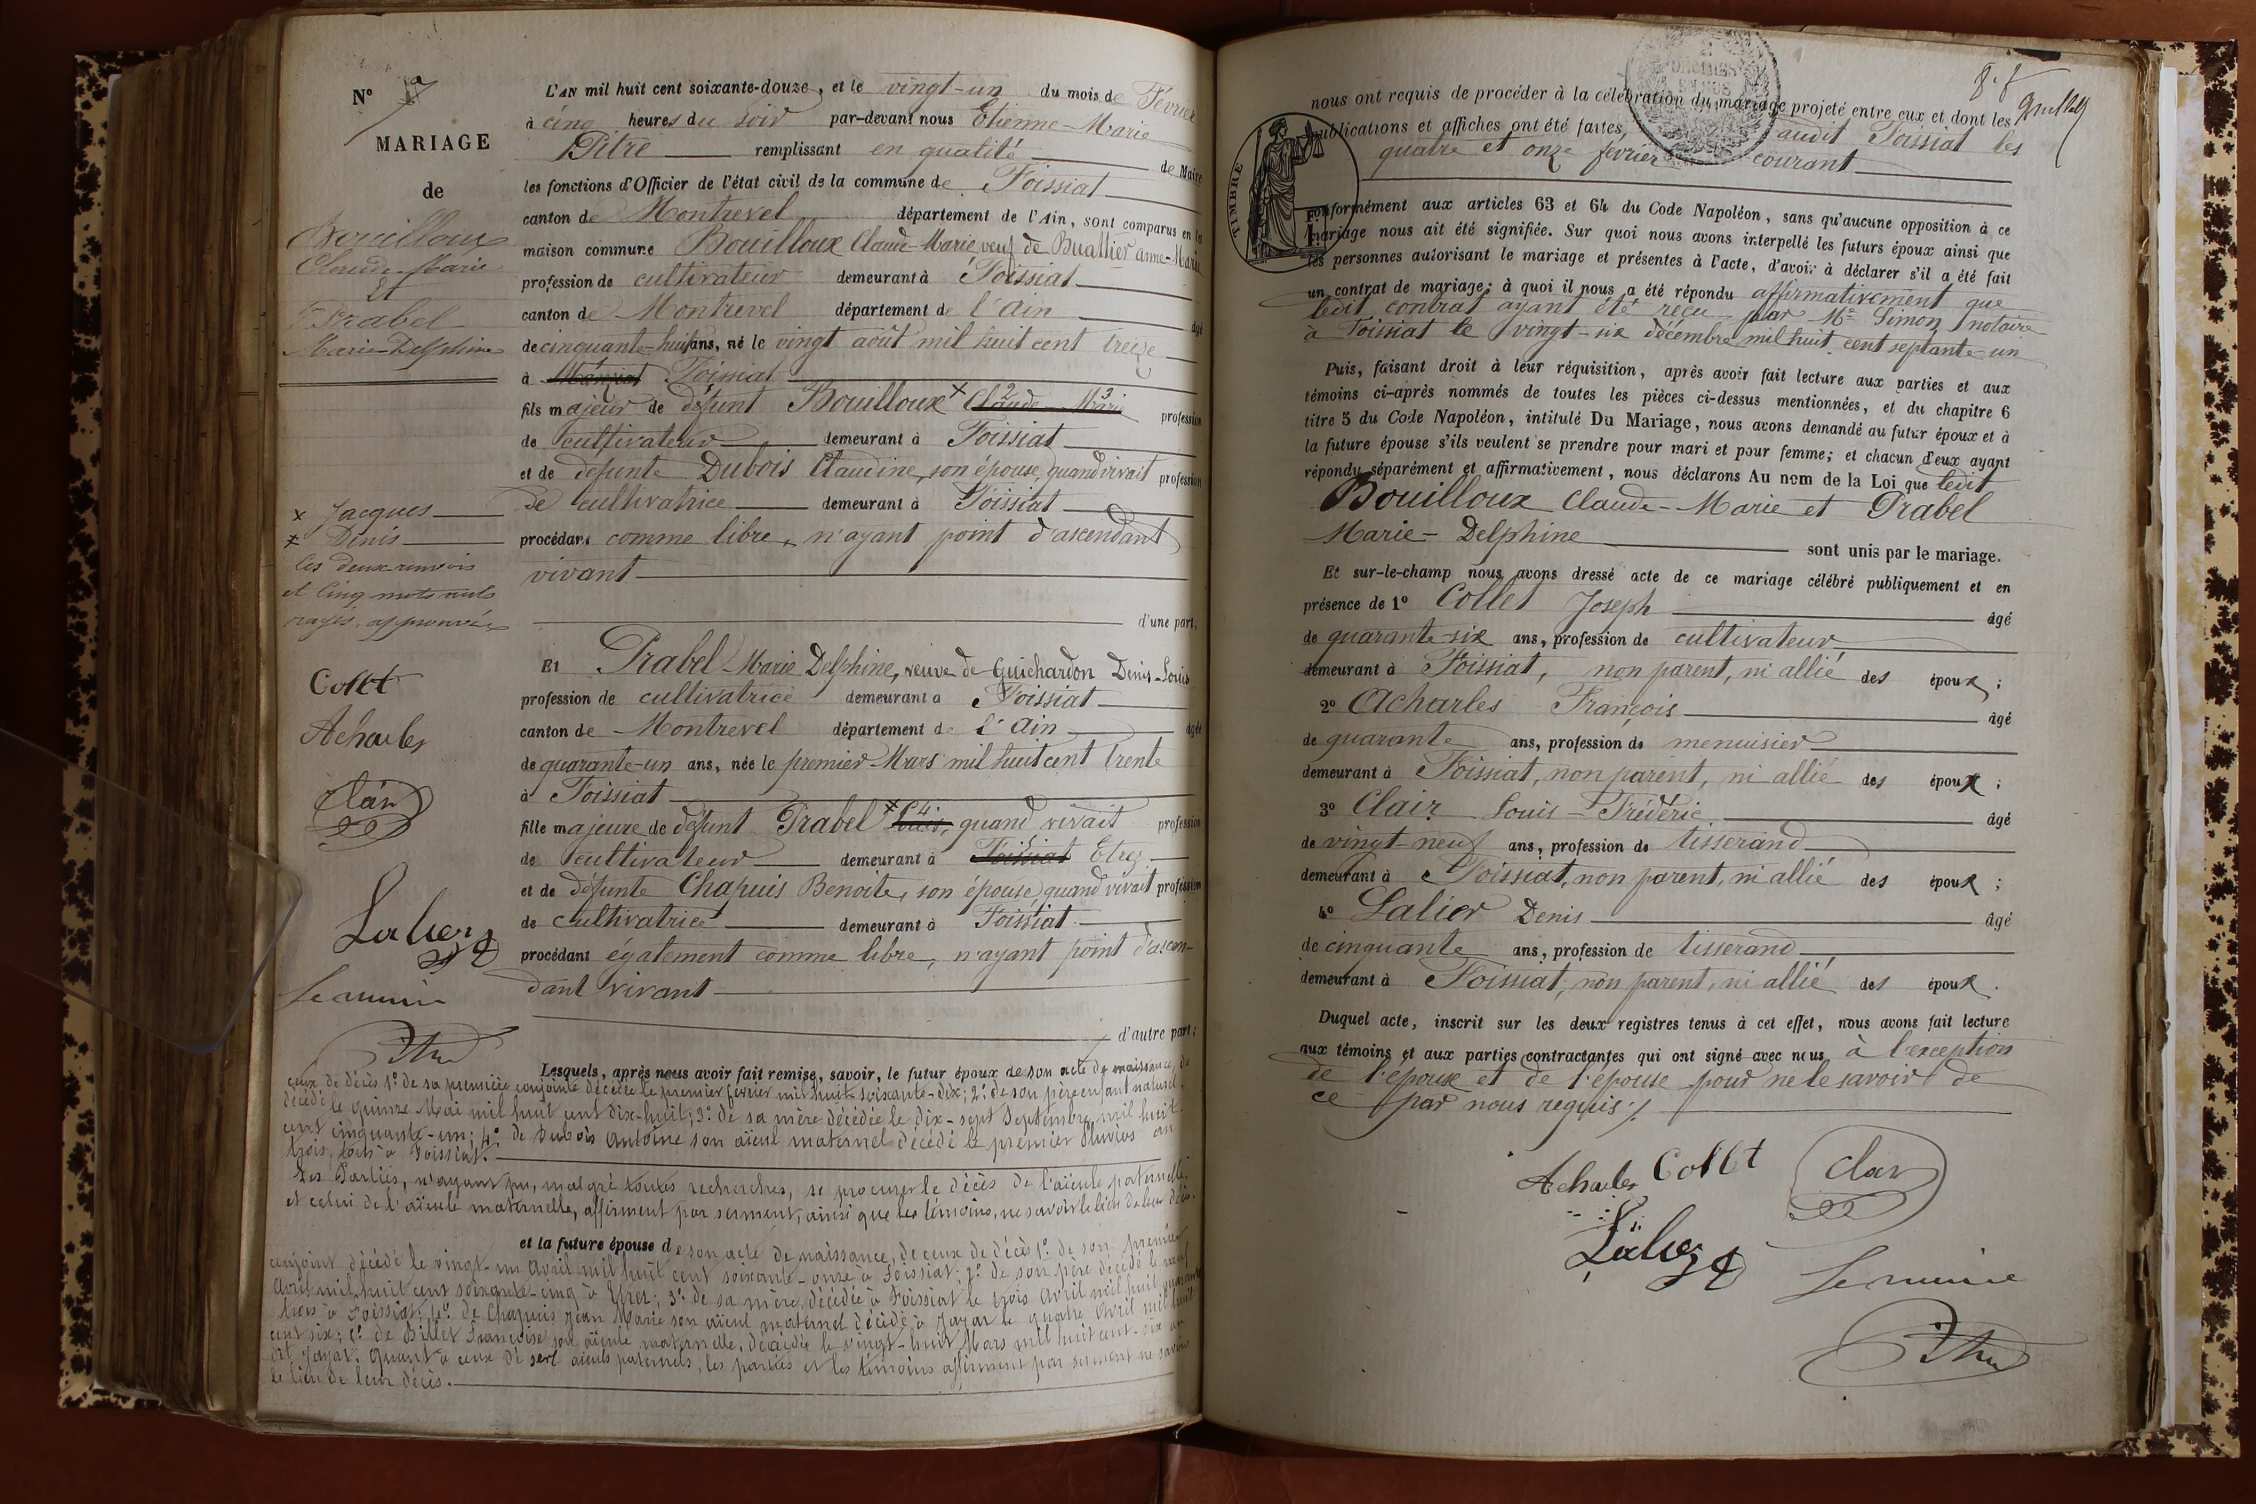 N° 17
MARIAGE
de
Bouilloux
Claude-Marie
Et
Prabel
Marie-Delphine
L'AN mil huit cent soixante-douze, et le vingt-un du mois de Février
à cinq heures du soir par-devant nous Etienne-Marie
Pitre remplissant en qualité de Maire
les fonctions d'Officier de l'état civil de la commune de Foissiat
canton de Montrevel département de l'Ain, sont comparus en la
maison commune Bouilloux Claude-Marie, veuf de Buathier Anne-Marie
profession de cultivateur demeurant à Foissiat
canton de Montrevel département de l'Ain âgé
de cinquante-huit ans, né le vingt août mil huit cent treize
à Foissiat
fils majeur de défunt Bouilloux × Claude Marie profession
de cultivateur demeurant à Foissiat
et de défunte Dubois Claudine, son épouse, quand vivait profession
de cultivatrice demeurant à Foissiat
procédant comme libre, n'ayant point d'ascendant
vivant
d'une part,
× Jacques
× Denis
les deux renvois
et cinq mots nuls
rayés, approuvés
Collet
Acharles
Clair
Lalier
Le maire
Pitre
Et Prabel Marie Delphine, veuve de Guichardon Denis-Louis
profession de cultivatrice demeurant à Foissiat
canton de Montrevel département de l'Ain âgée
de quarante-un ans, née le premier Mars mil huit cent trente
à Foissiat
fille majeure de défunt Prabel × Louis, quand vivait profession
de cultivateur demeurant à Foissiat Etrez
et de défunte Chapuis Benoite, son épouse, quand vivait profession
de cultivatrice demeurant à Foissiat
procédant également comme libre, n'ayant point d'ascen-
dant vivant
d'autre part;
Lesquels, après nous avoir fait remise, savoir, le futur époux de son acte de naissance, de
ceux de décès 1° de sa première conjointe décédée le premier février mil huit soixante-dix; 2° de son père enfant naturel,
décédé le quinze Mai mil huit cent dix-huit; 3° de sa mère décédée le dix-sept Septembre mil huit
cent cinquante-un; 4° de Dubois Antoine son aïeul maternel décédé le premier Pluvios an
trois, tous à Foissiat.
Les Parties, n'ayant pu, malgré toutes recherches, se procurer le décès de l'aïeule paternelle
et celui de l'aïeule maternelle, affirment par serment, ainsi que les témoins, ne savoir le lieu de leur décès.
et la future épouse de son acte de naissance, de ceux de décès 1° de son premier
conjoint décédé le vingt-un Avril mil huit cent soixante-onze à Foissiat; 2° de son père décédé le neuf
Avril mil huit cent cinquante-cinq à Etrez; 3° de sa mère, décédée à Foissiat le trois Avril mil huit quarante
trois à Foissiat; 4° de Chapuis Jean Marie son aïeul maternel décédé à Jayat le quatre Avril mil huit
cent six; 5° de Billet Françoise son aïeule maternelle, décédée le vingt-huit Mars mil huit cent-six au
dit Jayat. Quant à ceux de ses aïeuls paternels, les parties et les témoins affirment par serment ne savoir
le lieu de leur décès.
TIMBRE
nous ont requis de procéder à la célébration du mariage projeté entre eux et dont les
publications et affiches ont été faites, audit Foissiat les
quatre et onze février courant
conformément aux articles 63 et 64 du Code Napoléon, sans qu'aucune opposition à ce
mariage nous ait été signifiée. Sur quoi nous avons interpellé les futurs époux ainsi que
les personnes autorisant le mariage et présentes à l'acte, d'avoir à déclarer s'il a été fait
un contrat de mariage; à quoi il nous a été répondu affirmativement que
ledit contrat ayant été reçu par Me Simon notaire
à Foissiat le vingt-six décembre mil huit cent septante-un
Puis, faisant droit à leur réquisition, après avoir fait lecture aux parties et aux
témoins ci-après nommés de toutes les pièces ci-dessus mentionnées, et du chapitre 6
titre 5 du Code Napoléon, intitulé Du Mariage, nous avons demandé au futur époux et à
la future épouse s'ils veulent se prendre pour mari et pour femme; et chacun d'eux ayant
répondu séparément et affirmativement, nous déclarons Au nom de la Loi que ledit
Bouilloux Claude-Marie et Prabel
Marie-Delphine sont unis par le mariage.
Et sur-le-champ nous avons dressé acte de ce mariage célébré publiquement et en
présence de 1° Collet Joseph âgé
de quarante-six ans, profession de cultivateur
demeurant à Foissiat, non parent, ni allié des époux;
2° Acharles François âgé
de quarante ans, profession de menuisier
demeurant à Foissiat, non parent, ni allié des époux;
3° Clair Louis-Frédéric âgé
de vingt-neuf ans, profession de tisserand
demeurant à Foissiat, non parent, ni allié des époux;
4° Lalier Denis âgé
de cinquante ans, profession de tisserand
demeurant à Foissiat, non parent, ni allié des époux.
Duquel acte, inscrit sur les deux registres tenus à cet effet, nous avons fait lecture
aux témoins et aux parties contractantes qui ont signé avec nous à l'exception
de l'époux et de l'épouse pour ne le savoir de
ce par nous requis./.
Acharles Collet Clair
Lalier
Le maire
Pitre